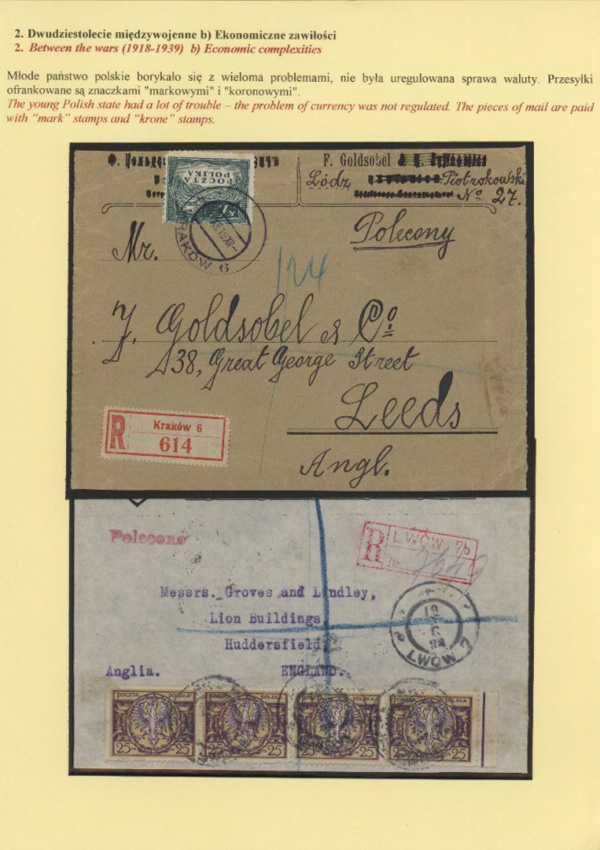 2. Dwudziestolecie międzywojenne b) Ekonomiczne zawiłości
2. Between the wars (1918-1939) b) Economic complexities
Młode państwo polskie borykało się z wieloma problemami, nie była uregulowana sprawa waluty. Przesyłki
ofrankowane są znaczkami "markowymi" i "koronowymi".
The young Polish state had a lot of trouble – the problem of currency was not regulated. The pieces of mail are paid
with “mark” stamps and “krone” stamps.
F. Goldsobel
Łódz Piotrokowski
No 27.
POCZTA
POLSKA
KRAKÓW 6
Polecony
Mr.
124
J. Goldsobel es Co
38, Great George Street
Leeds
Angl.
R Kraków 6
614
Polecone
R LWÓW 7b
Messrs. Groves and Lindley,
Lion Buildings
Huddersfield
Anglia. ENGLAND.
LWÓW 7
POCZTA POLSKA POCZTA POLSKA
25 25 25 25 25 25 25 25